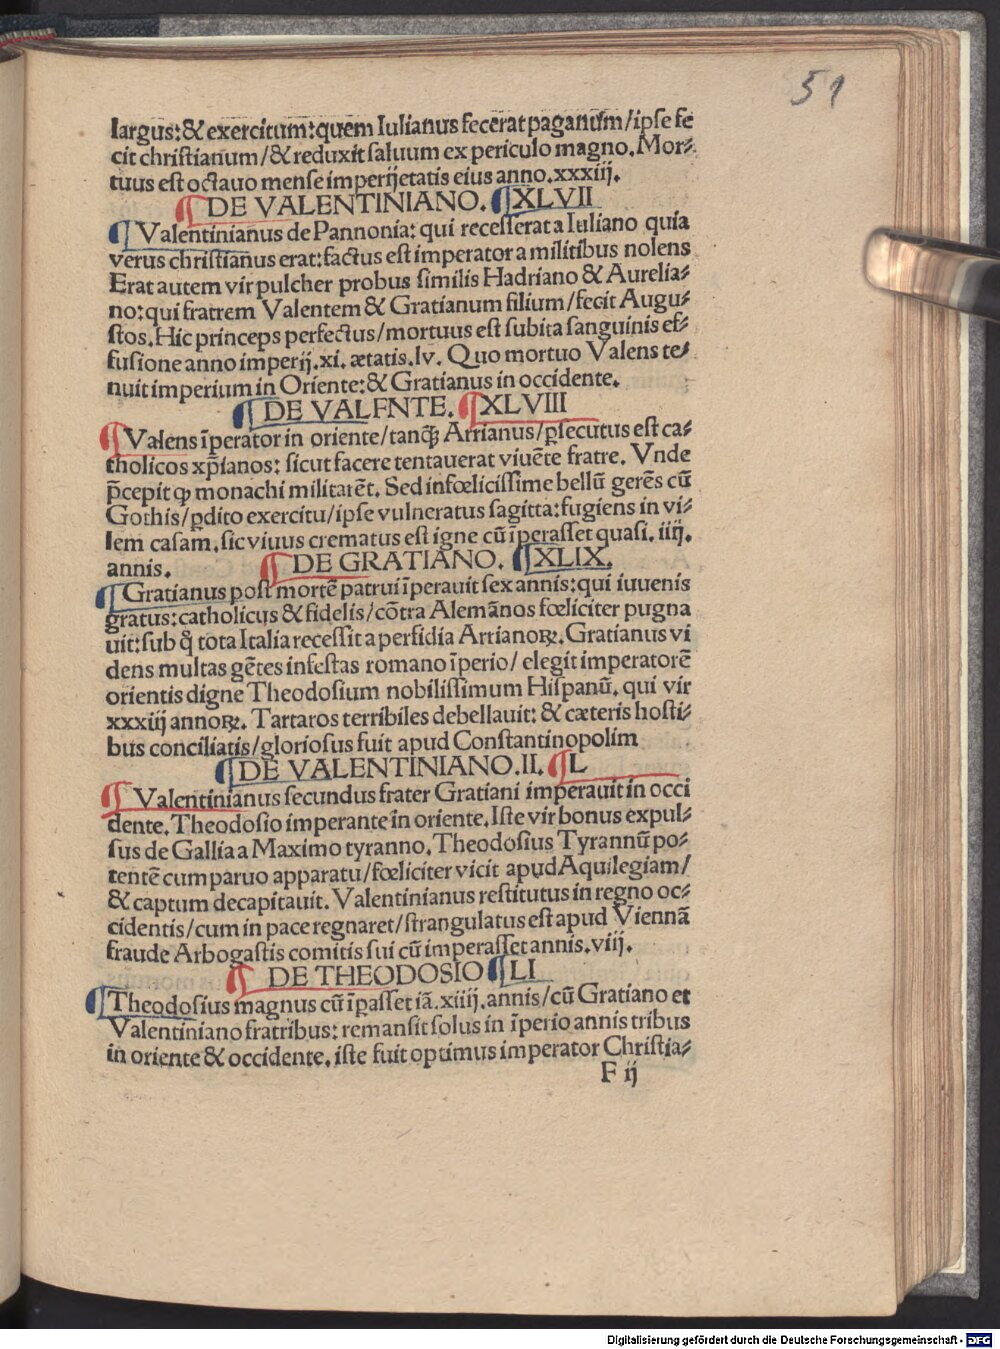 51
largus:& exercitum:quem Iulianus fecerat paganum/ipse fe
cit christianum/& reduxit saluum ex periculo magno.Mor-
tuus est octauo mense imperij etatis eius anno.xxxiij.
¶ DE VALENTINIANO. ¶ XLVII
¶ Valentinianus de Pannonia: qui recesserat a Iuliano quia
verus christianus erat:factus est imperator a militibus nolens
Erat autem vir pulcher probus similis Hadriano & Aurelia-
no:qui fratrem Valentem & Gratianum filium/fecit Augu-
stos.Hic princeps perfectus/mortuus est subita sanguinis ef-
fusione anno imperij.xi.ætatis.lv. Quo mortuo Valens te-
nuit imperium in Oriente:& Gratianus in occidente.
¶ DE VALENTE. ¶ XLVIII
¶ Valens īperator in oriente/tanꝙ̃ Arrianus/ꝑsecutus est ca-
tholicos xp̄ianos: sicut facere tentauerat viuēte fratre. Vnde
p̄cepit ꝙ monachi militarēt. Sed infœlicissime bellū gerēs cū
Gothis/ꝑdito exercitu/ipse vulneratus sagitta:fugiens in vi-
lem casam.sic viuus crematus est igne cū īperasset quasi. iiij.
annis. ¶ DE GRATIANO. ¶ XLIX.
¶ Gratianus post mortē patrui īperauit sex annis:qui iuuenis
gratus:catholicus & fidelis/cōtra Alemānos fœliciter pugna
uit:sub q̄ tota Italia recessit a perfidia Arrianoꝝ.Gratianus vi
dens multas gētes infestas romano īperio/ elegit imperatorē
orientis digne Theodosium nobilissimum Hispanū. qui vir
xxxiij annoꝝ. Tartaros terribiles debellauit: & cæteris hosti-
bus conciliatis/gloriosus fuit apud Constantinopolim
¶ DE VALENTINIANO.II. ¶ L
¶ Valentinianus secundus frater Gratiani imperauit in occi
dente.Theodosio imperante in oriente.Iste vir bonus expul-
sus de Gallia a Maximo tyranno.Theodosius Tyrannū po-
tentē cum paruo apparatu/fœliciter vicit apud Aquilegiam/
& captum decapitauit. Valentinianus restitutus in regno oc-
cidentis/cum in pace regnaret/strangulatus est apud Viennā
fraude Arbogastis comitis sui cū imperasset annis.viij.
¶ DE THEODOSIO ¶ LI
¶ Theodosius magnus cū īꝑasset iā.xiiij.annis/cū Gratiano et
Valentiniano fratribus: remansit solus in īperio annis tribus
in oriente & occidente.iste fuit optimus imperator Christia-
F ij
Digitalisierung gefördert durch die Deutsche Forschungsgemeinschaft - DFG